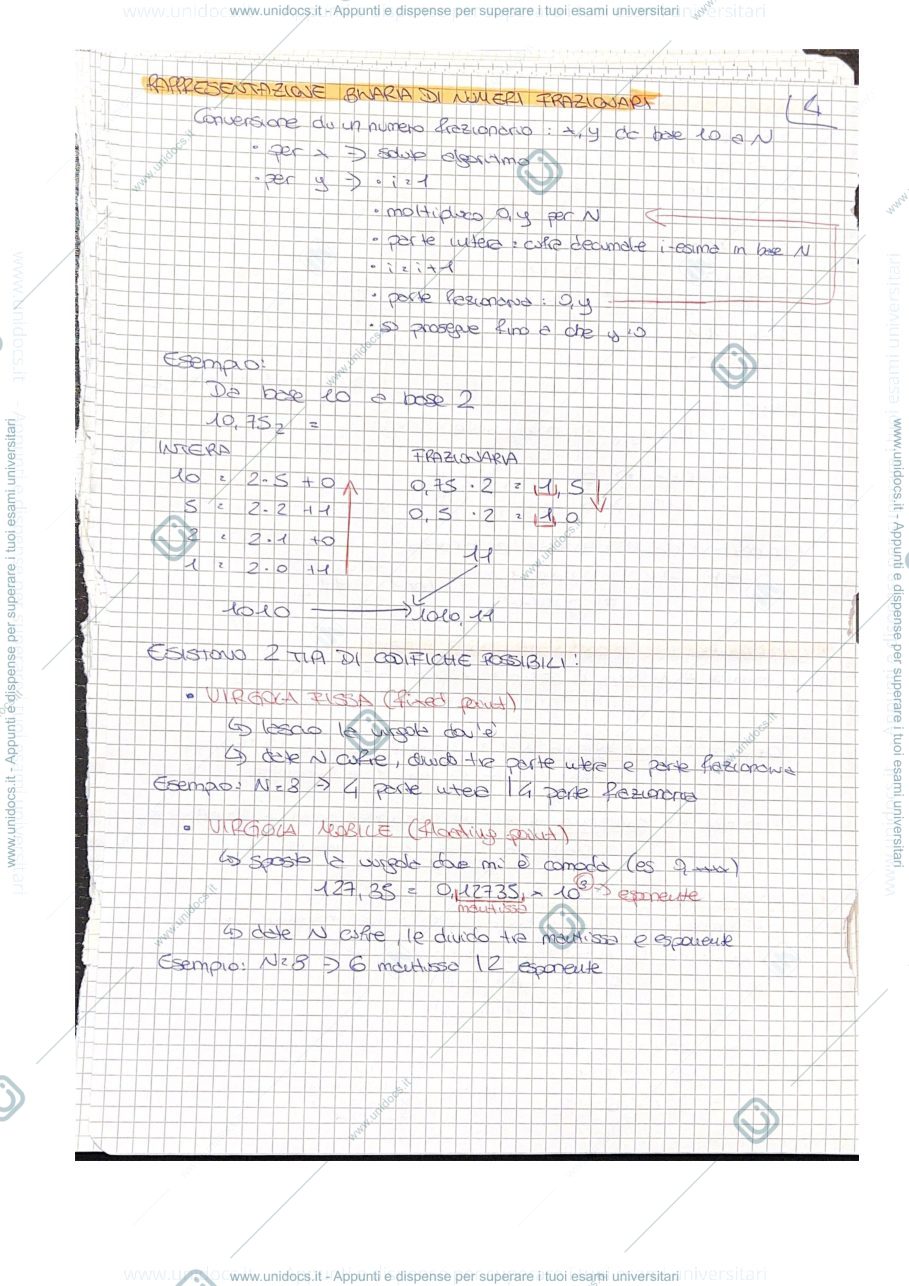 www.unidocs.it - Appunti e dispense per superare i tuoi esami universitari
RAPPRESENTAZIONE BINARIA DI NUMERI FRAZIONARI
4
Conversione di un numero frazionario : x,y da base 10 a N
• per x => solito algoritmo
• per y => • i=1
• moltiplico 0,y per N
• parte intera = cifra decimale i-esima in base N
• i=i+1
• parte frazionaria : 0,y
• si prosegue fino a che y=0
Esempio:
Da base 10 a base 2
10,75₂ =
INTERA
FRAZIONARIA
10 = 2·5 +0
0,75 · 2 = 1,5
5 = 2·2 +1
0,5 · 2 = 1,0
2 = 2·1 +0
11
1 = 2·0 +1
1010 → 1010,11
ESISTONO 2 TIPI DI CODIFICHE POSSIBILI:
• VIRGOLA FISSA (fixed point)
↳ lascio la virgola dov'è
↳ date N cifre, divido tra parte intera e parte frazionaria
Esempio: N=8 → 4 parte intera | 4 parte frazionaria
• VIRGOLA MOBILE (floating point)
↳ sposto la virgola dove mi è comodo (es 0,)
127,35 = 0,12735 × 10³ → esponente
mantissa
↳ date N cifre, le divido tra mantissa e esponente
Esempio: N=8 → 6 mantissa | 2 esponente
www.unidocs.it - Appunti e dispense per superare i tuoi esami universitari